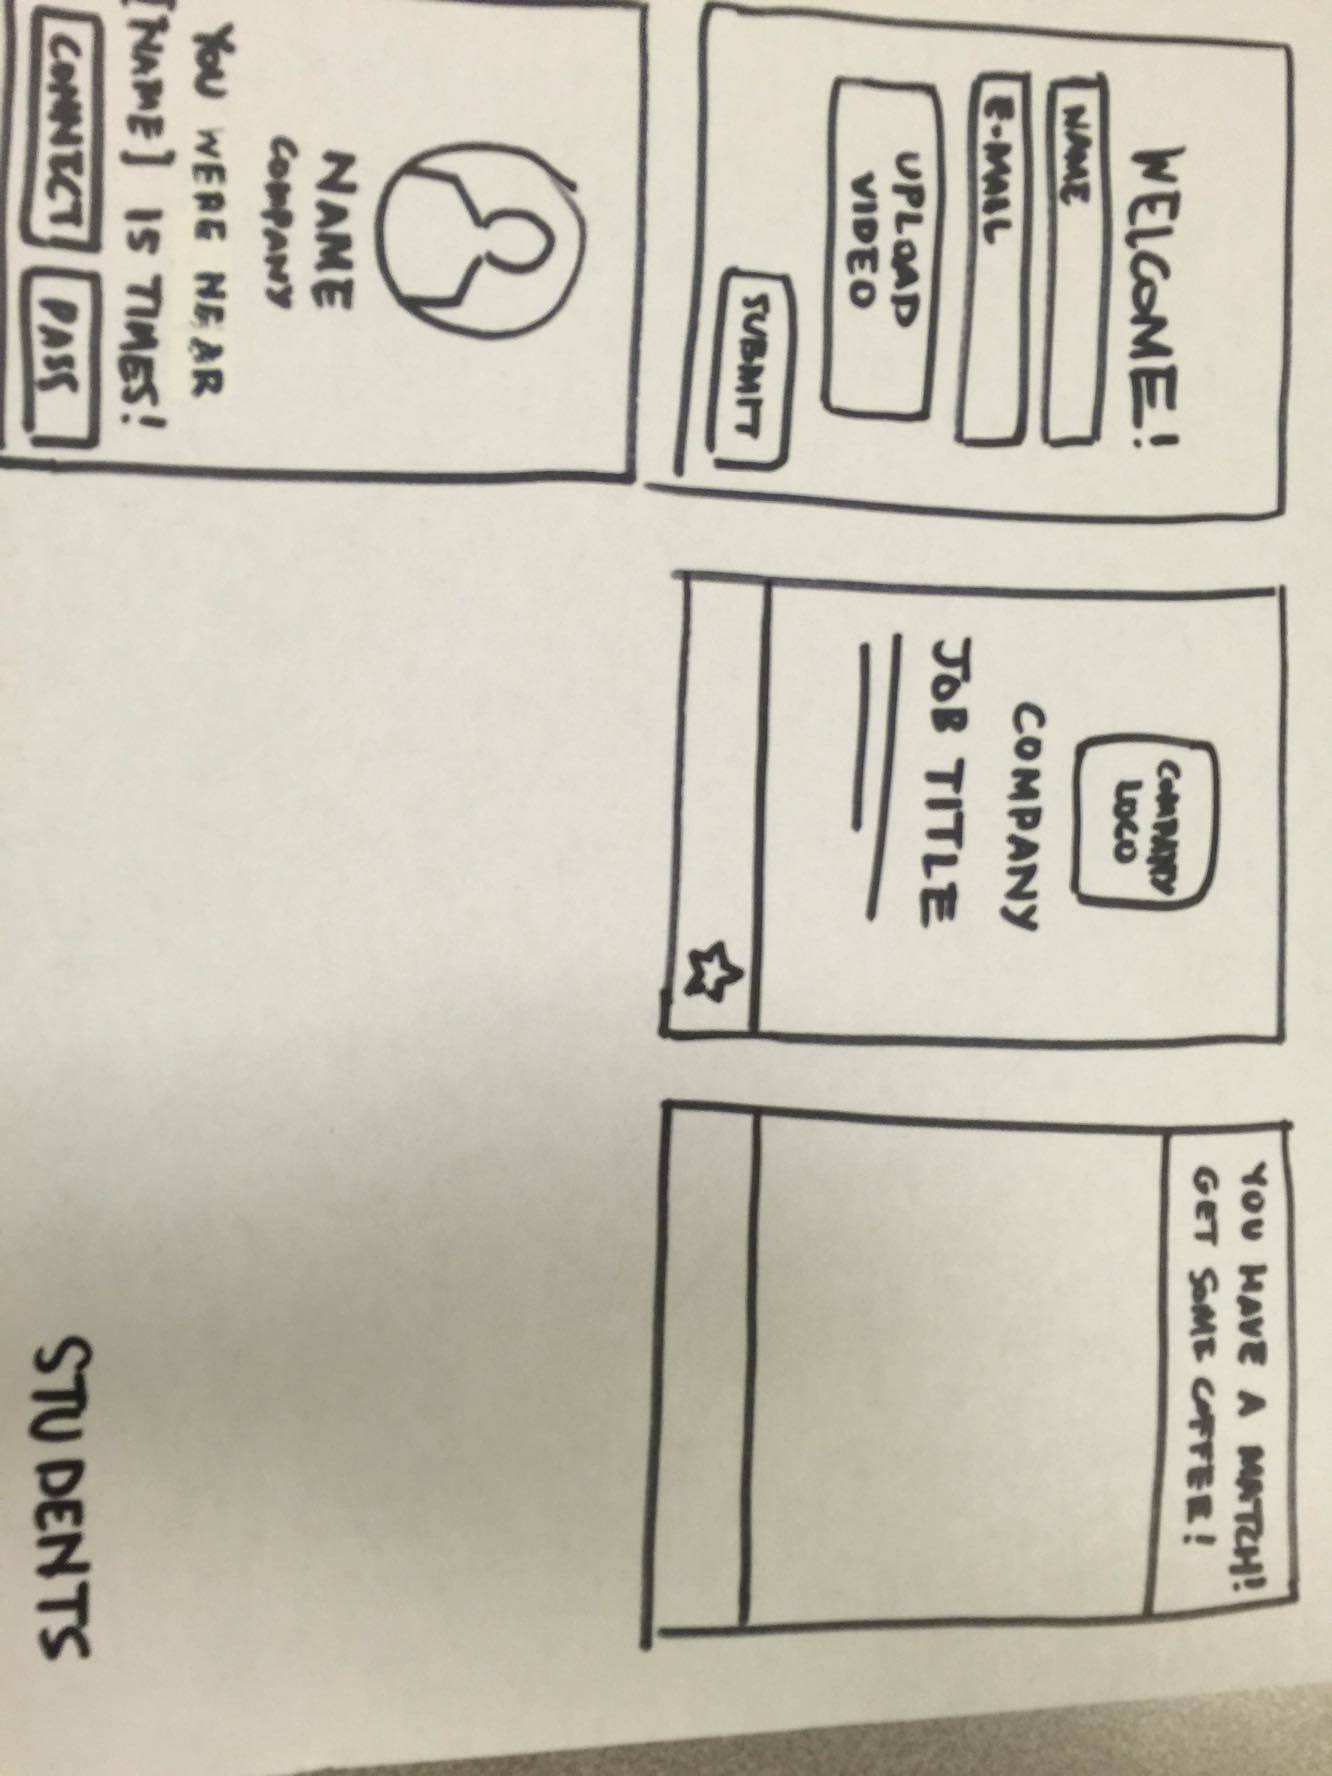 WELCOME!
NAME
E-MAIL
UPLOAD
VIDEO
SUBMIT
COMPANY
LOGO
COMPANY
JOB TITLE
YOU HAVE A MATCH!
GET SOME COFFEE!
NAME
COMPANY
YOU WERE NEAR
[NAME] 15 TIMES!
CONNECT
PASS
STUDENTS